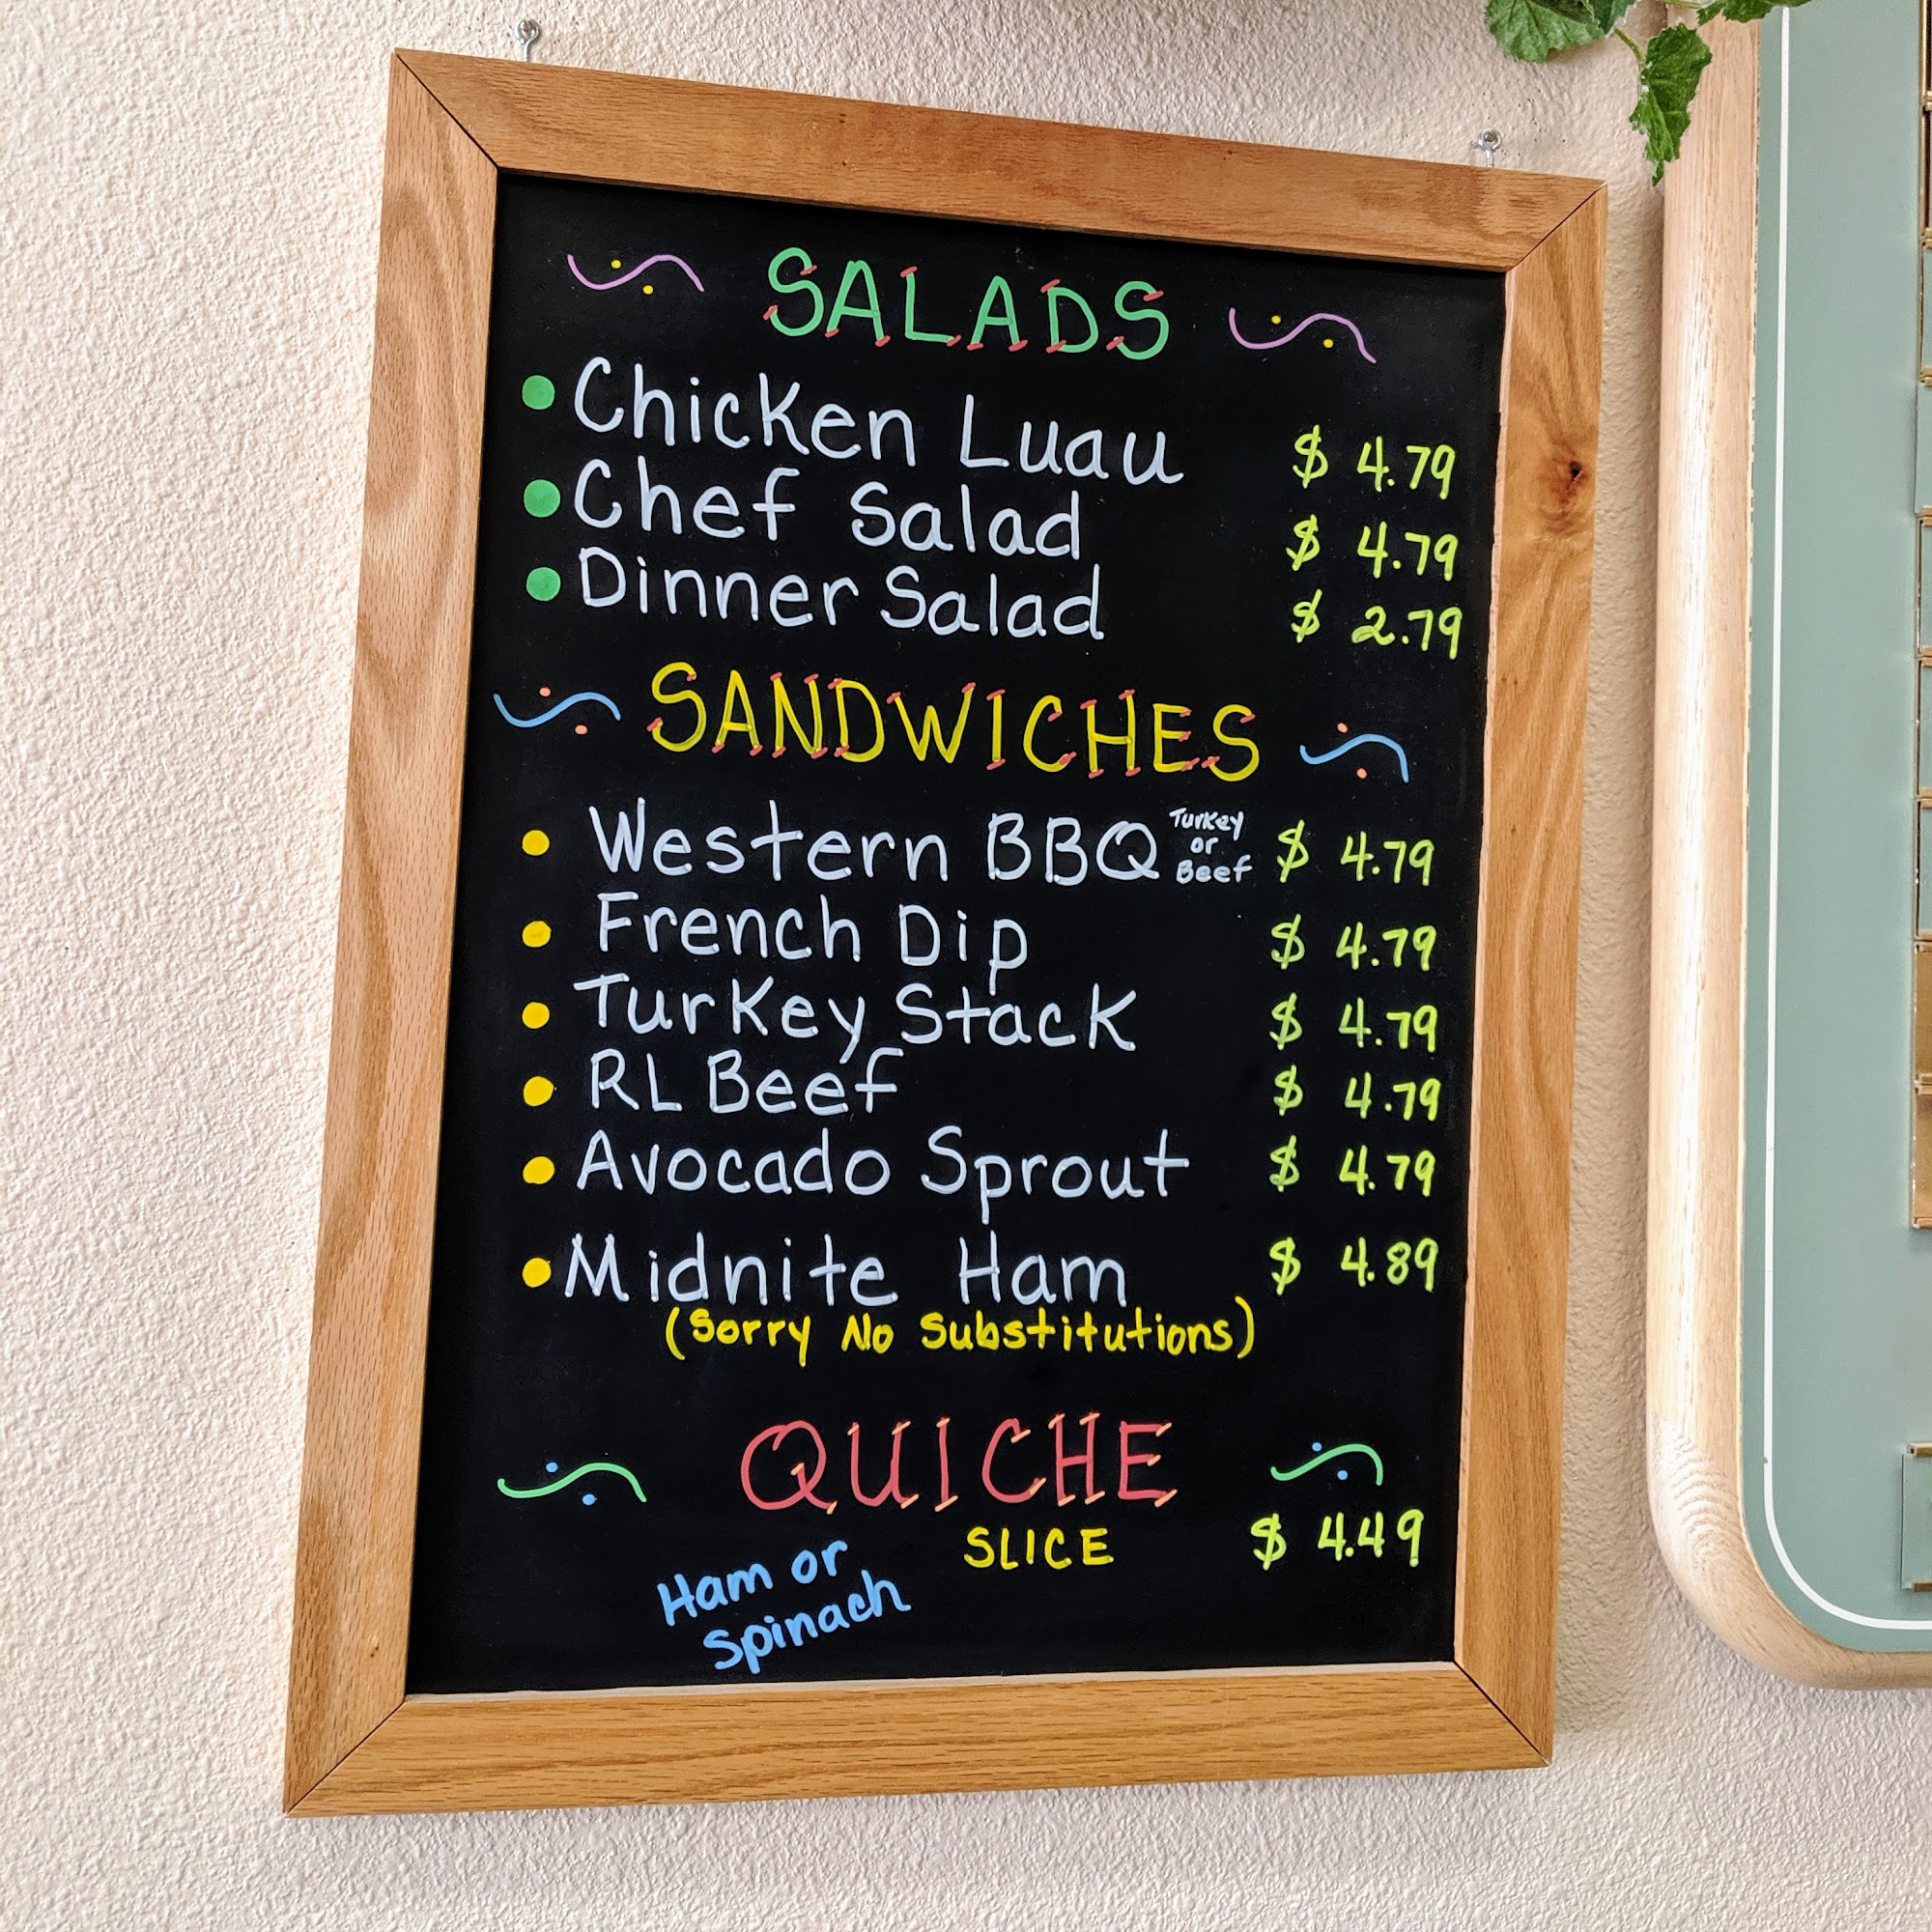 SALADS
• Chicken Luau $ 4.79
• Chef Salad $ 4.79
• Dinner Salad $ 2.79
SANDWICHES
• Western BBQ Turkey or Beef $ 4.79
• French Dip $ 4.79
• Turkey Stack $ 4.79
• RL Beef $ 4.79
• Avocado Sprout $ 4.79
• Midnite Ham $ 4.89
(Sorry No Substitutions)
QUICHE
SLICE $ 4.49
Ham or
Spinach